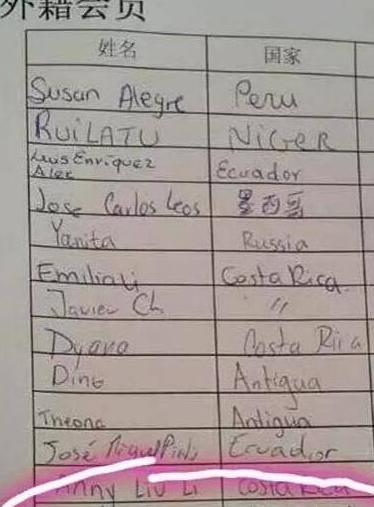 外籍会员
姓名 国家
Susan Alegre Peru
RUILATU NIGER
Luis Enriquez Ecuador
Alex
Jose Carlos Leos 墨西哥
Yanita Russia
Emilia Li Costa Rica
Javier Ch "
Dyana Costa Rica
Dino Antigua
Theona Antigua
José Miguel Ecuador
Liu Li Costa Rica